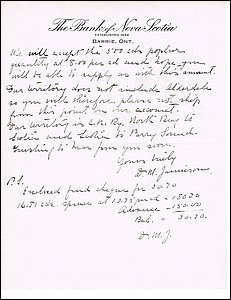 The Bank of Nova Scotia
ESTABLISHED 1832
BARRIE, ONT.
We will accept the 500 cds poplar
quantity at 8.00 per cd and hope you
will be able to supply us with this amount.
Our territory does not include
so you will therefore please not ship
from this point on our account.
Our territory is C.N. Ry North Bay to
and to Parry Sound.
Trusting to hear from you soon.
Yours truly
D. W. Jamieson
P.S.
Enclosed find cheque for 30.70
16.81 cds spruce at 10.75 per cd = 180.70
Advance - 150.00
Bal. = 30.70
D. W. J.